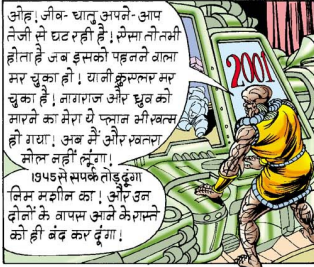 ओह! जीव-धातु अपने-आप
तेजी से घट रही है! ऐसा तो तभी
होता है जब इसको पहनने वाला
मर चुका हो! यानी क्रूस्लर मर
चुका है! नागराज और ध्रुव को
मारने का मेरा ये प्लान भी खत्म
हो गया! अब मैं और खतरा
मोल नहीं लूंगा!
1945 से संपर्क तोड़ दूंगा
निम मशीन का! और उन
दोनों के वापस आने के रास्ते
को ही बंद कर दूंगा!
2001